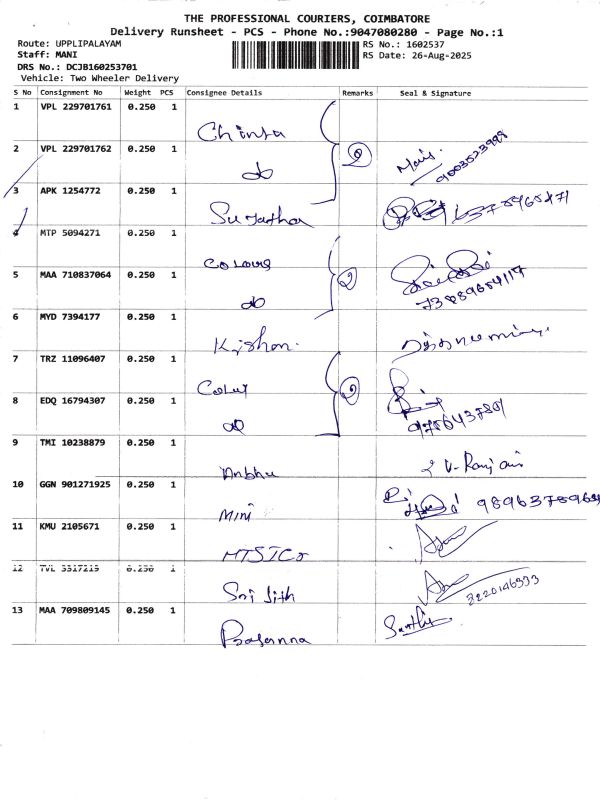 THE PROFESSIONAL COURIERS, COIMBATORE
Delivery Runsheet - PCS - Phone No.:9047080280 - Page No.:1
Route: UPPLIPALAYAM
RS No.: 1602537
Staff: MANI
RS Date: 26-Aug-2025
DRS No.: DCJB160253701
Vehicle: Two Wheeler Delivery
S No Consignment No Weight PCS Consignee Details Remarks Seal & Signature
1 VPL 229701761 0.250 1
Chinta
2 VPL 229701762 0.250 1
do
Mani. 9003523998
3 APK 1254772 0.250 1
Sujatha
MTP 5094271 0.250 1
Colours
5 MAA 710837064 0.250 1
do
6 MYD 7394177 0.250 1
Krishan.
7 TRZ 11096407 0.250 1
8 EDQ 16794307 0.250 1
do
9 TMI 10238879 0.250 1
Anbhu
10 GGN 901271925 0.250 1
Mini
11 KMU 2105671 0.250 1
12 TVL 3317219 0.250 1
Sri Jith
13 MAA 709809145 0.250 1
Prasanna